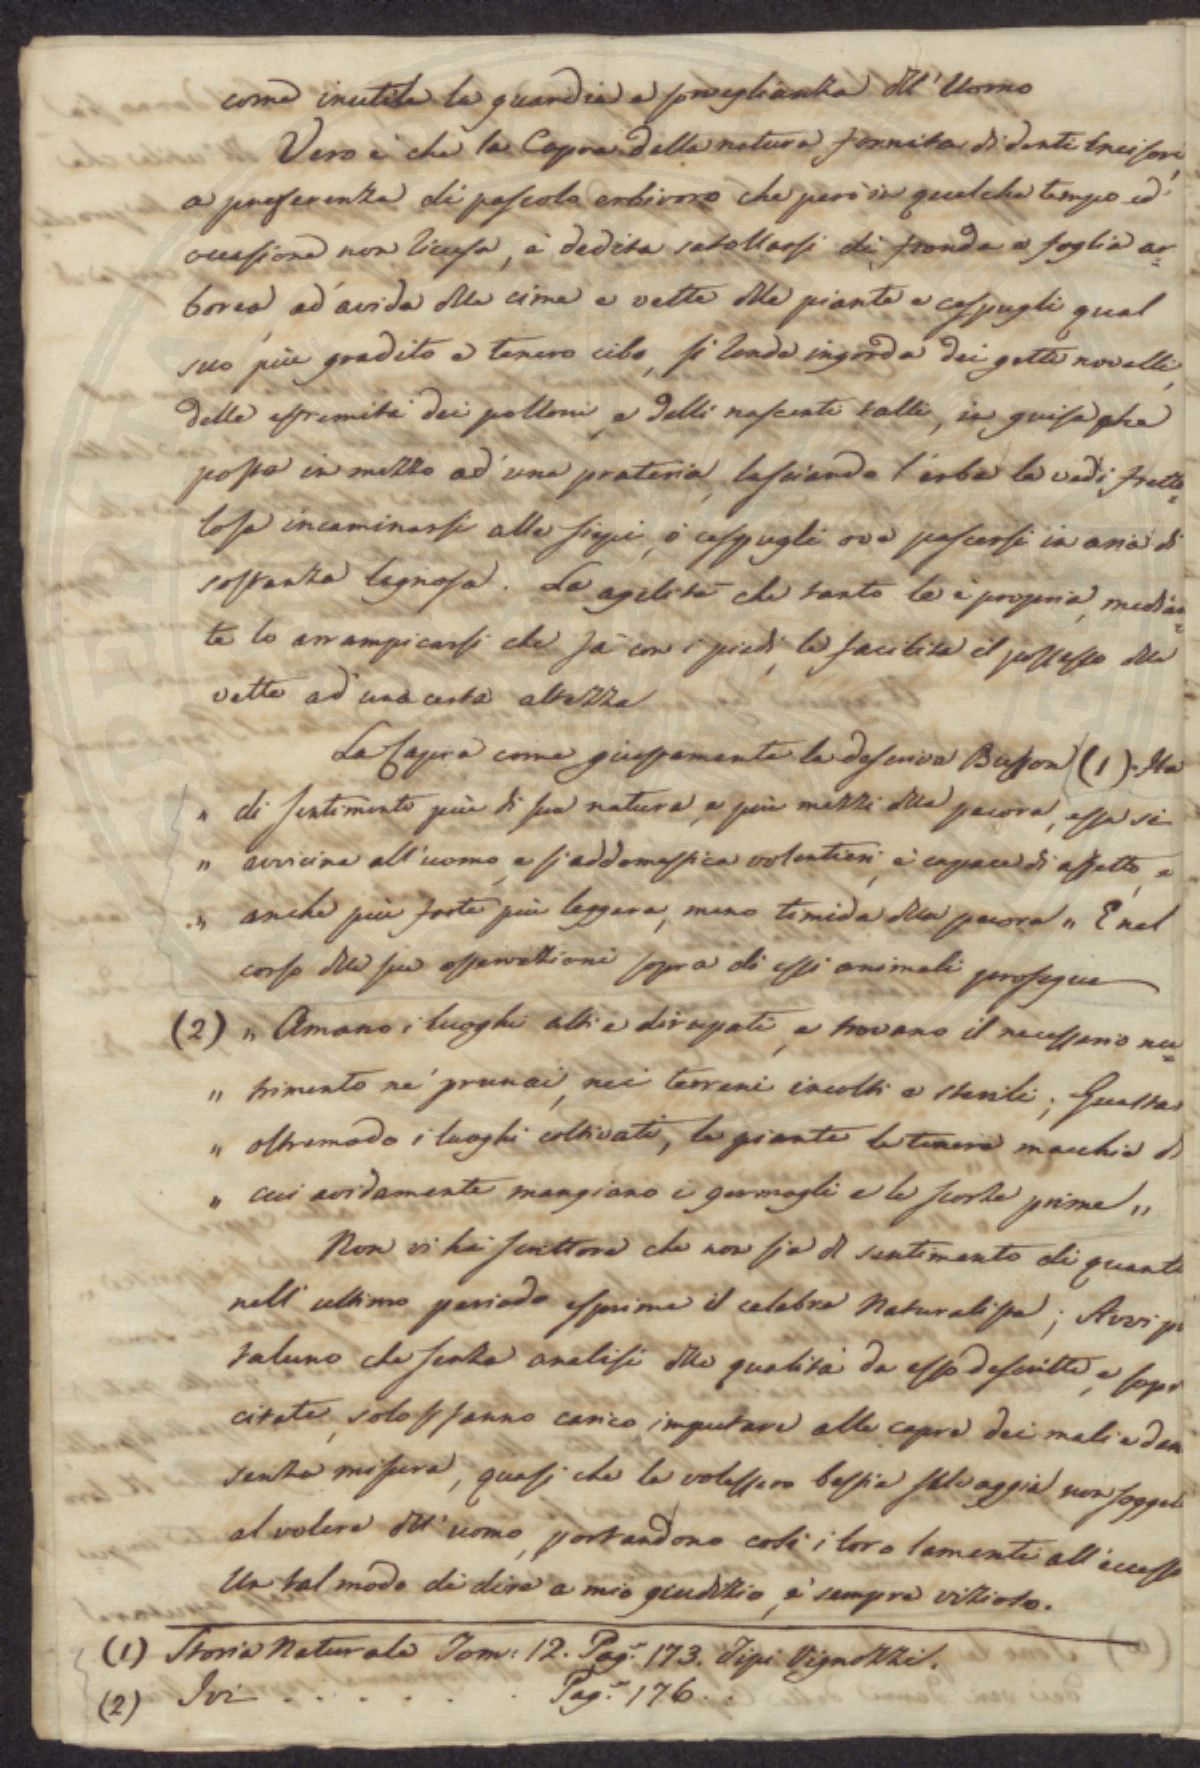 come inutile la guardia e sorveglianza dll' Uomo
Vero è che la Capra dalla natura fornita di denti incisori
a preferenza di pascolo erbivoro che però in qualche tempo ed
occasione non ricusa, è dedita satollarsi di fronda e foglia ar=
borea, ad avida dlle cime e vette dlle piante e cespugli qual
suo più gradito e tenero cibo, si rende ingorda dei getti novelli,
delle estremità dei polloni, e delli nascenti talli, in guisa che
posta in mezzo ad una prateria, lasciando l'erba la vedi fretto=
losa incaminarsi alle siepi, o cespugli ove pascersi in aria di
sostanza legnosa. La agilità che tanto le è propria, median=
te lo arrampicarsi che fà con i piedi, le facilita il possesso dlle
vette ad una certa altezza
La Capra come giustamente la descrive Buffon (1). Ha
" di sentimento più di sua natura, e più mezzi dlla pecora, essa si
" avvicina all'uomo, e s'addomestica volentieri, è capace di affetto, e
" anche più forte più leggera, meno timida dlla pecora " E nel
corso dlle sue osservazioni sopra di essi animali prosegue
(2) " Amano i luoghi alti e dirupati, e trovano il necessario nu=
" trimento ne' prunai, nei terreni incolti e sterili; Guasta
" oltremodo i luoghi coltivati, le piante le tenere macchie di
" cui avidamente mangiano i germogli e le scorze prime "
Non vi ha scrittore che non sia di sentimento di quanto
nell' ultimo periodo esprime il celebre Naturalista; Avvi
taluno che senza analisi dlle qualità da esso descritte, e sopr
citate, solo si fanno carico imputare alle capre dei mali e dan
senza misura, quasi che le volessero bestie selvaggie non sogget
al volere dll' uomo, portandone così i loro lamenti all'eccesso
Un tal modo di dire a mio giudizio, è sempre vizioso.
(1) Storia Naturale Tom: 12. Pag. 173. Tipi Vignozzi.
(2) Ivi . . . . . . . Pag. 176. .